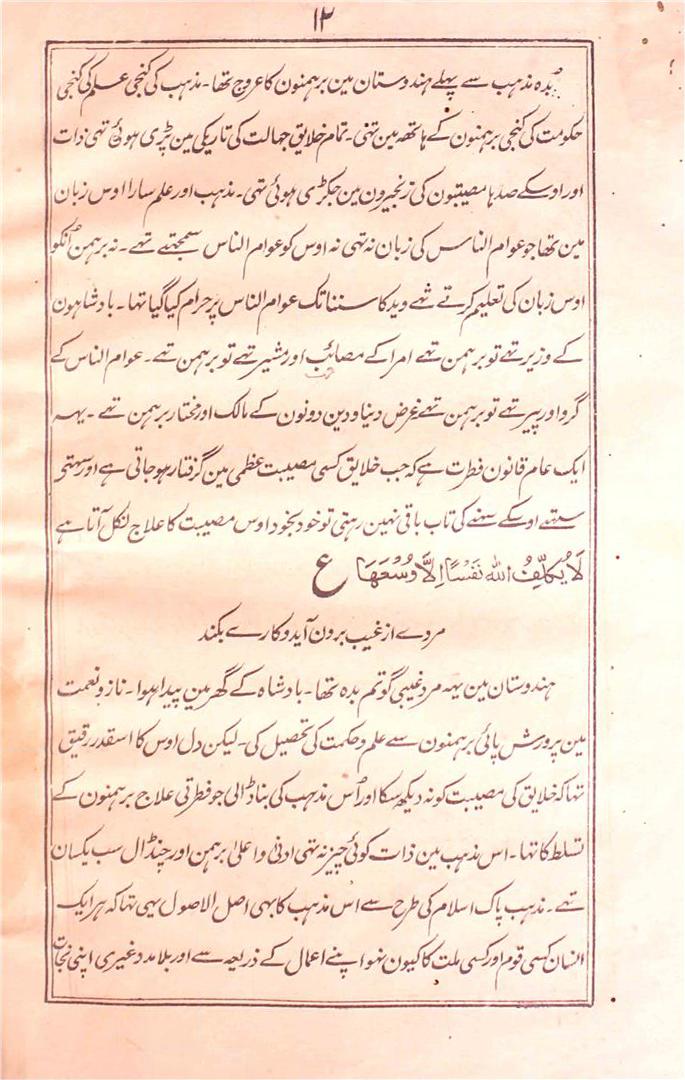 ۱۲
بُدہ مذہب سے پہلے ہندوستان مین برہمنون کا عروج تھا۔ مذہب کی کنجی علم کی کنجی
حکومت کی کنجی برہمنون کے ہاتھہ مین تہی۔ تمام خلایق جہالت کی تاریکی مین پڑی ہوئی تہی ذات
اور اوسکے صدہا مصیبتون کی زنجیرون مین جکڑی ہوئی تہی۔ مذہب اور علم سارا اوس زبان
مین تھا جو عوام الناس کی زبان نہ تہی نہ اوس کو عوام الناس سمجہتے تہے۔ نہ برہمن اُنکو
اوس زبان کی تعلیم کرتے تہے وید کا سننا تک عوام الناس پر حرام کیا گیا تہا۔ بادشاہون
کے وزیر تہے تو برہمن تہے امرا کے مصائب اور مشیر تہے تو برہمن تہے۔ عوام الناس کے
گرو اور پیر تہے تو برہمن تہے غرض دنیا و دین دونون کے مالک اور مختار برہمن تہے۔ یہہ
ایک عام قانون فطرت ہے کہ جب خلایق کسی مصیبت عظمی مین گرفتار ہوجاتی ہے اور سہتی
سہتے اوسکے سہنے کی تاب باقی نہین رہتی تو خود بخود اوس مصیبت کا علاج نکل آتا ہے
لَا یُکَلِّفُ اللہ نَفْسًا اِلَّا وُسْعَھَا ع
مردے از غیب برون آید و کارے بکند
ہندوستان مین یہہ مردِ غیبی گوتم بدہ تھا۔ بادشاہ کے گھر مین پیدا ہوا۔ ناز و نعمت
مین پرورش پائی برہمنون سے علم و حکمت کی تحصیل کی۔ لیکن دل اوس کا اسقدر رقیق
تہا کہ خلایق کی مصیبت کو نہ دیکھ سکا اور اُس مذہب کی بنا ڈالی جو فطرتی علاج برہمنون کے
تسلط کا تہا۔ اس مذہب مین ذات کوئی چیز نہ تہی ادنیٰ و اعلیٰ برہمن اور چنڈال سب یکسان
تہے۔ مذہب پاک اسلام کی طرح سے اس مذہب کا بہی اصل الاصول یہی تہا کہ ہر ایک
انسان کسی قوم اور کسی ملت کا کیون نہو اپنے اعمال کے ذریعہ سے اور بلا مدد غیری اپنی نجات